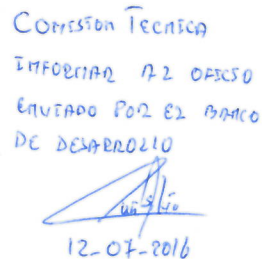 COMISION TECNICA
INFORMAR AL OFICIO
ENVIADO POR EL BANCO
DE DESARROLLO
12-07-2016